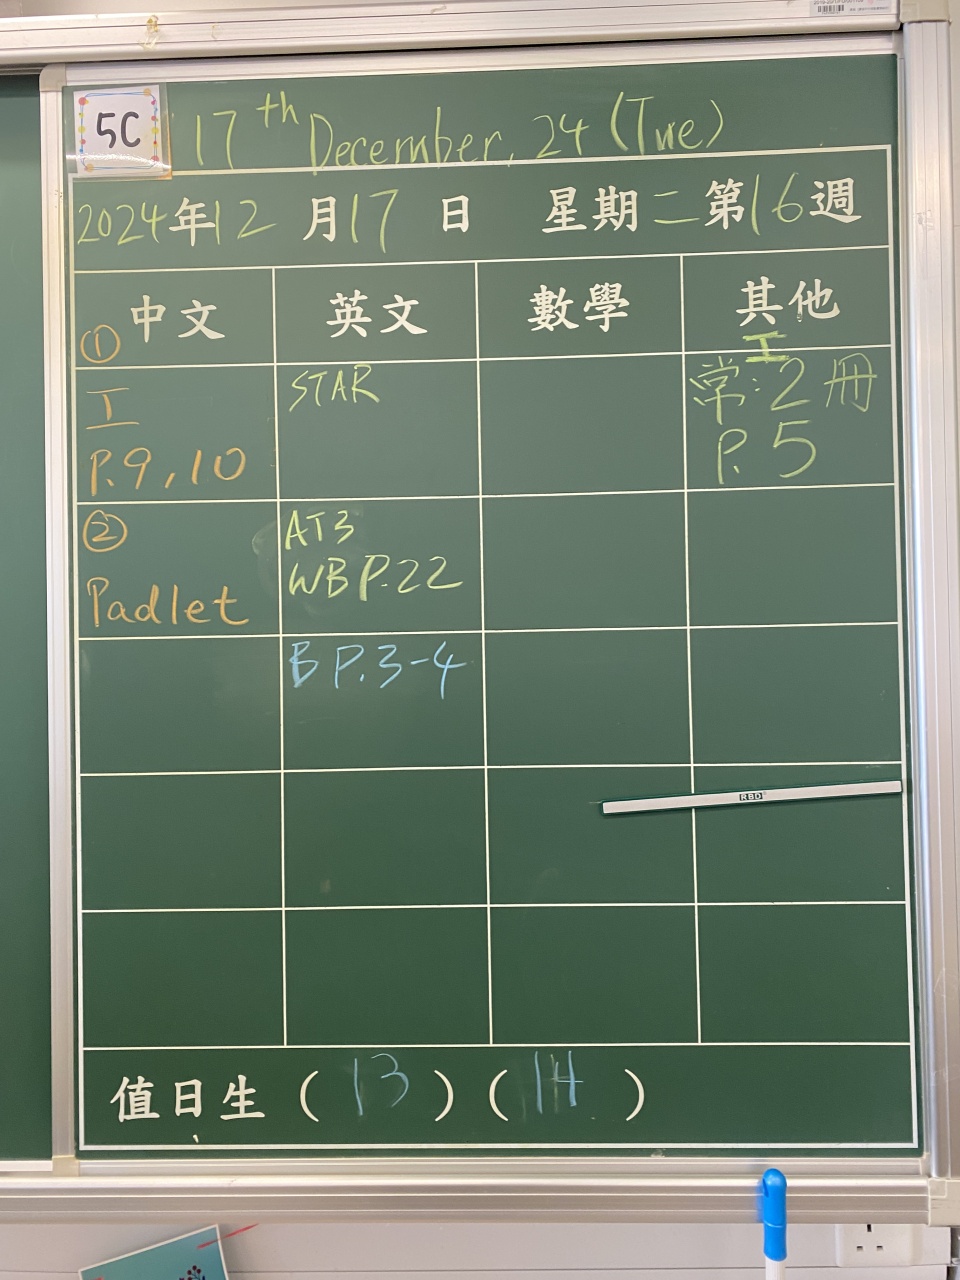 5C
17th December, 24 (Tue)
2024年12月17日 星期二第16週
中文 英文 數學 其他
①
工
P.9,10
STAR
工
常:2冊
P.5
②
Padlet
AT3
WB P.22
B P.3-4
RBD
值日生(13)(14)